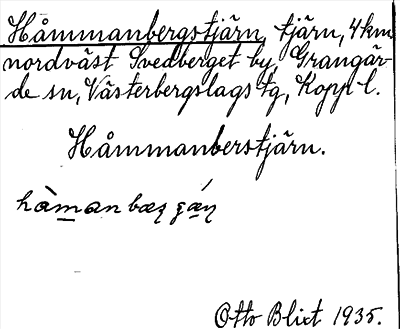 Håmmanbergstjärn, tjärn, 4 km
nordväst Svedberget by, Grangär-
de sn, Västerbergslags tg, Kopp. l.
Håmmanberstjärn.
Otto Blixt 1935.